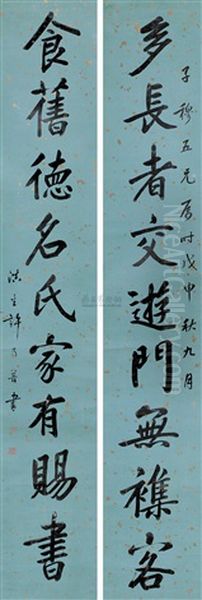 子穆五兄屬時戊申秋九月
多長者交遊門無襍客
食舊德名氏家有賜書
滇生許乃普書